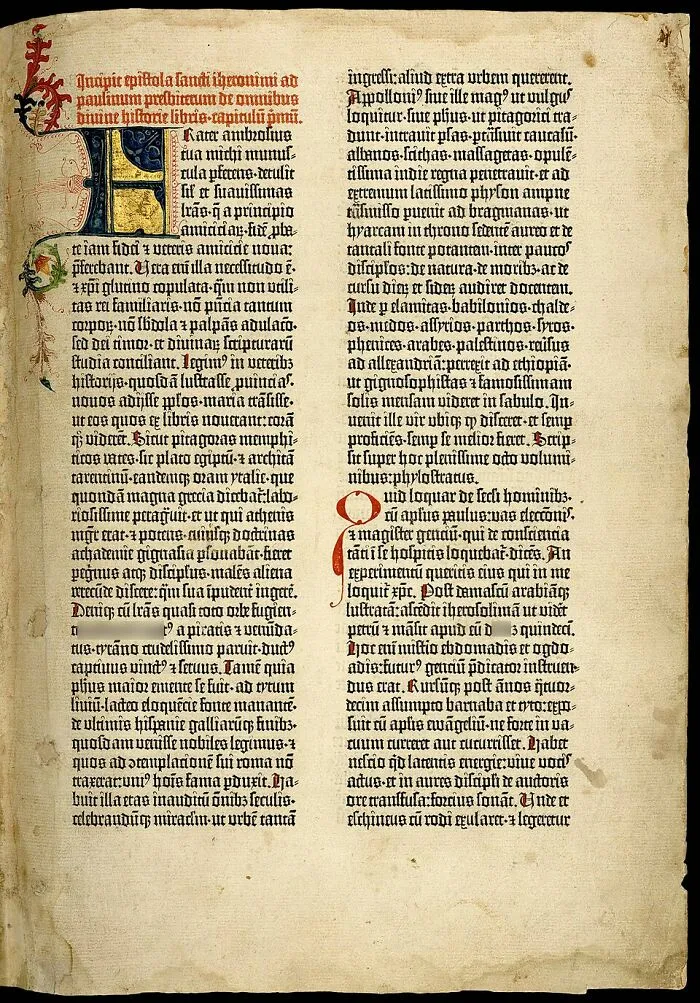 Incipit epistola sancti iheronimi ad
paulinum presbiterum de omnibus
divine historie libris·capitulū p̄mū.
Frater ambrosius
tua michi munus-
cula ꝑferens·detulit
sil̄ et suavissimas
lr̄as·q̄ a principio
amiciciaꝝ·fidē ꝓba-
te iam fidei ⁊ veteris amicicie nova:
p̄ferebant. Vera eni̅ illa necessitudo ē·
⁊ xp̄i glutino copulata·qm̄ non utili-
tas rei familiaris·nō pn̄cia tantum
corpoꝝ·nō s̄bdola ⁊ palpās adulac̄o·
sed dei timor·et divinaꝝ scripturarū
studia conciliant. Legimꝰ in veteribꝫ
historijs·quosdā lustrasse ꝓvinciaꝭ·
novos adijsse ppl̄os·maria trāsisse·
ut eos quos ex libris noverant:corā
qꝫ viderēt. Sicut pitagoras memphi-
ticos vates·sic plato egiptū·⁊ architā
tarentinū·eandemqꝫ oram ytalie·que
quondā magna grecia dicebat̄:labo-
riosissime peragr̄vit·et ut qui athenis
mgr̄ erat·⁊ potens·cuiusqꝫ doctrinas
achademie gignasia ꝑsonabāt·fieret
peg̅nus atqꝫ discipl̄us·malēs aliena
verecūde discere:qm̄ sua īpudent̄ ingere.
Deniqꝫ cū lr̄as quasi toto orbe fugien-
tꝰ a piratis ⁊ venūda-
tus·tyrāno crudelissimo paruit·ductꝰ
captivus vinctꝰ ⁊ servus. Tamē quia
ph̄us maior emente se fuit·ad tytum
liviū·lacteo eloquēcie fonte manantē·
de ultimis hispanie galliarūqꝫ finibꝫ·
quosdam venisse nobiles legimus·⁊
quos ad ꝯtemplacionē sui roma nō
traxerat:uniꝰ hoīs fama ꝑduxit. Ha-
buit illa etas inauditū om̄ibꝫ seculis·
celebrandūqꝫ miraclm̄·ut urbē tantā
ingressi:aliud extra urbem quererent.
Appolloniꝰ sive ille magꝰ ut vulgꝰ
loquitur·sive ph̄us·ut pitagorici tra-
dunt·intravit ꝑsas·ꝑtr̄asivit caucasū·
albanos·scithas·massagetas·opulē-
tissima indie regna penetravit·et ad
extremum latissimo physon ampne
trāsmisso ꝑvenit ad bragmanas·ut
hyarcam in throno sedentē aureo et de
tantali fonte potantem·inter paucoꝭ
discipl̄os:de natura·de moribꝫ·ac de
cursu dieꝝ et sideꝝ audiret docentem.
Inde ꝑ elamitas·babilonios·chalde-
os·medos·assyrios·parthos·syros·
phenices·arabes·palestinos·reversus
ad allexandriā:perrexit ad ethiopiā·
ut gignosophistas ⁊ famosissimam
solis mensam videret in sabulo. In-
venit ille vir ubiqꝫ qꝫ disceret·et semꝑ
proficiēs·semꝑ se melior fieret. Scrip-
sit super hoc plenissime octo volumi-
nibus:phylostratus.
Quid loquar de secl̄i hominibꝫ·
cū apl̄us paulus:vas elecc̄onīs·
⁊ magister genciū·qui de consciencia
tāti ī se hospitis loquebat̄·dicēs. An
experimentū queritis eius qui in me
loquit̄ xp̄c. Post damascū arabiāqꝫ
lustratā:ascēdit iherosolimā ut vid̄et
petrū ⁊ māsit apud eū quindeci̅.
Hoc eni̅ misterio ebdomadis et ogdo-
adis:futurꝰ genciū p̄dicator instruen-
dus erat. Rursūqꝫ post ānos q̄tuor-
decim assumpto barnaba et tyto:expo-
suit cū apl̄is ewāgeliū·ne forte in va-
cuum curreret aut cucurrisset. Habet
nescio qd̄ latentis energie:vive vocꝭ
actus·et in aures discipl̄i de auctoris
ore transfusa:forcius sonāt. Unde et
eschineus cū rodi exularet·⁊ legeretur